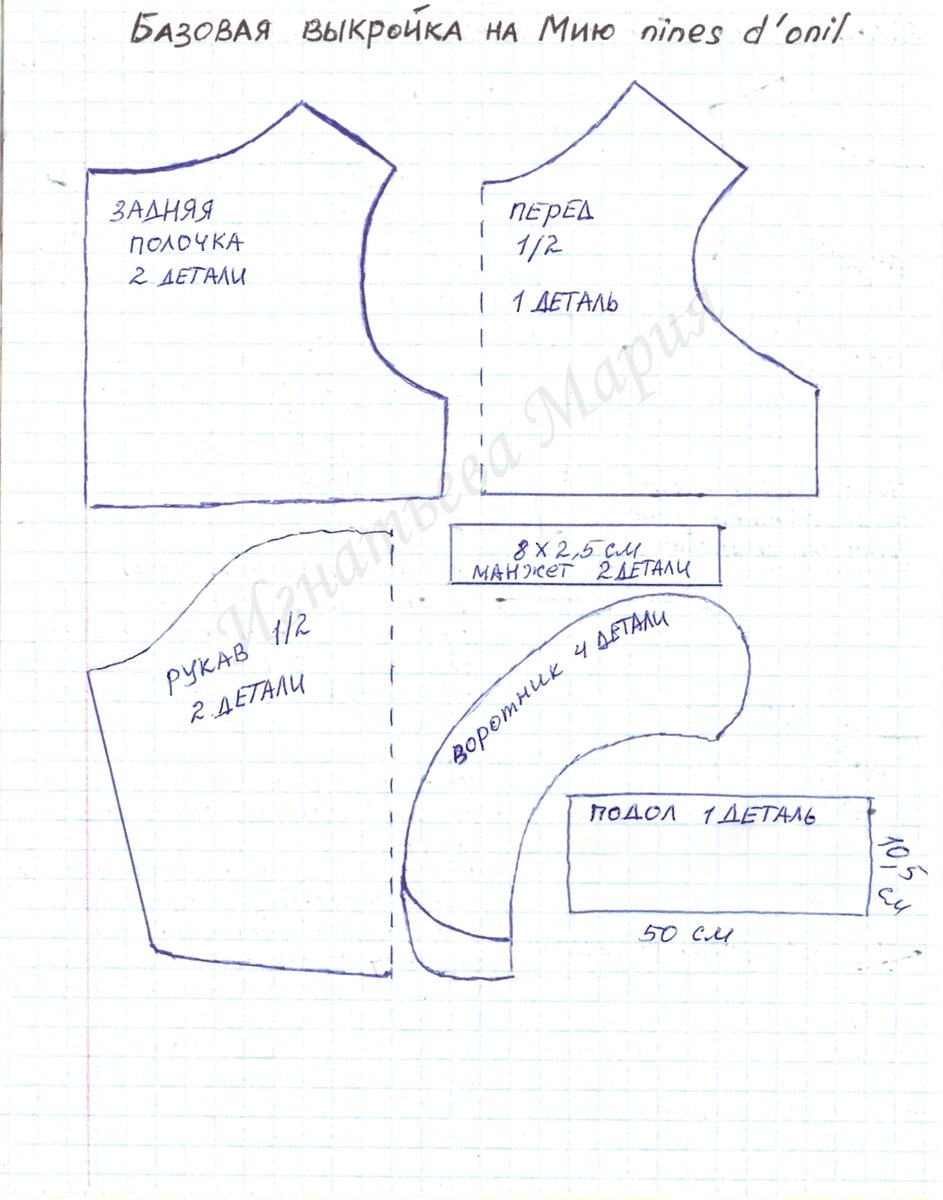 Базовая выкройка на Мию nines d'onil
ЗАДНЯЯ
ПОЛОЧКА
2 ДЕТАЛИ
ПЕРЕД
1/2
1 ДЕТАЛЬ
Игнатьева Мария
8 х 2,5 см
манжет 2 ДЕТАЛИ
РУКАВ 1/2
2 ДЕТАЛИ
воротник 4 ДЕТАЛИ
ПОДОЛ 1 ДЕТАЛЬ
10,5 см
50 см